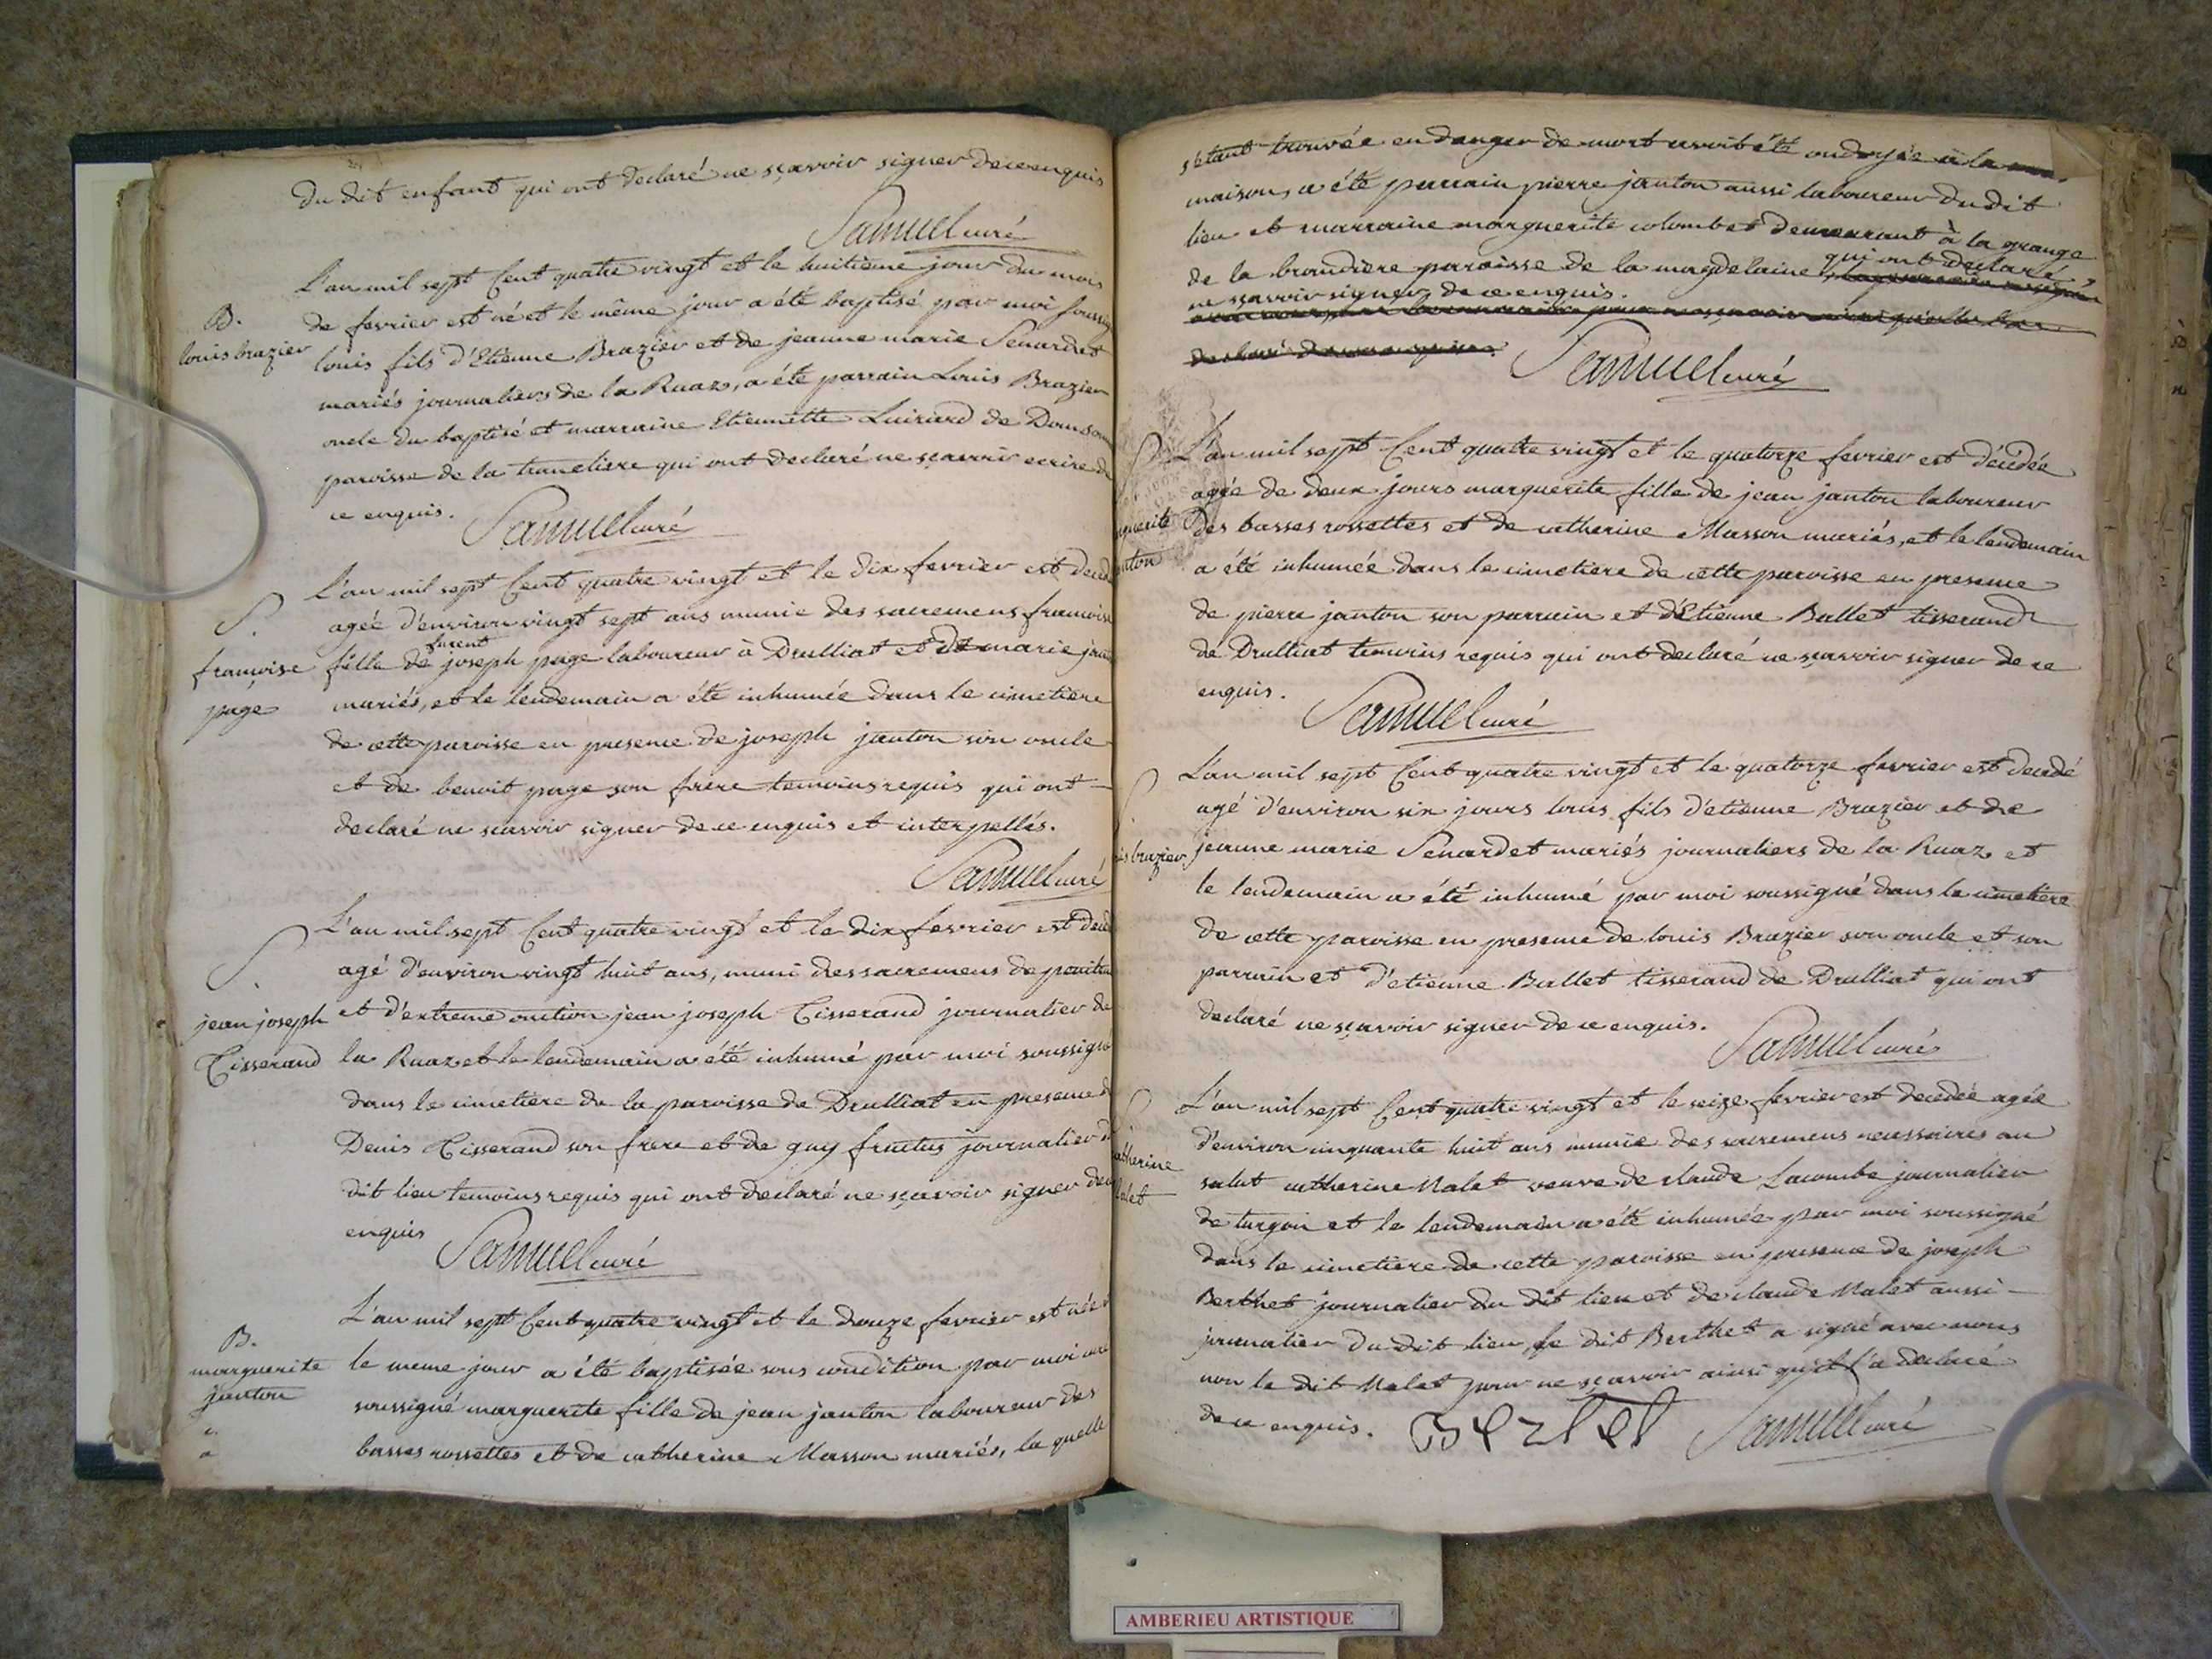 du dit enfant qui ont declaré ne sçavoir signer de ce enquis
Samuel curé
L'an mil sept Cent quatre vingt et le huitieme jour du mois
B.
louis brazier
de fevrier est né et le même jour a été baptisé par moi soussig
louis fils d'Etienne Brazier et de jeanne marie Senardet
mariés journaliers de la Ruaz, a été parrain Louis Brazier
oncle du baptisé et marraine Etiennette Luirard de
paroisse de la trancliere qui ont declaré ne sçavoir ecrire de
ce enquis.
Samuel curé
L'an mil sept Cent quatre vingt et le dix fevrier est deced
S.
françoise
page
agée d'environ vingt sept ans munie des sacremens francoise
fille de furent joseph page laboureur à Drulliat et de marie
mariés, et le lendemain a été inhumée dans le cimetiere
de cette paroisse en presence de joseph janton son oncle
et de benoit page son frere temoins requis qui ont
declaré ne sçavoir signer de ce enquis et interpellés.
Samuel curé
L'an mil sept Cent quatre vingt et le dix fevrier est deced
S.
jean joseph
Tisserand
agé d'environ vingt huit ans, muni des sacremens de peniten
et d'extreme onction jean joseph Tisserand journalier de
la Ruaz et le lendemain a été inhumé par moi soussigné
dans le cimetiere de la paroisse de Drulliat en presence d
Denis Tisserand son frere et de guy fructus journalier d
dit lieu temoins requis qui ont declaré ne sçavoir signer de ce
enquis
Samuel curé
L'an mil sept Cent quatre vingt et le douze fevrier est née
B.
marguerite
janton
le meme jour a été baptisée sous condition par moi curé
soussigné marguerite fille de jean janton laboureur des
basses rossettes et de catherine Masson mariés, la quelle
s'étant trouvée en danger de mort avoit été ondoyée à la
maison, a été parrain pierre janton aussi laboureur du dit
lieu et marraine marguerite colombet demeurant à la grange
de la brandiere paroisse de la magdelaine qui ont declaré
ne sçavoir signer de ce enquis.
declaré de ce enquise.
Samuel curé
S.
L'an mil sept Cent quatre vingt et le quatorze fevrier est décédée
agée de deux jours marguerite fille de jean janton laboureur
guerite
nton
des basses rossettes et de catherine Masson mariés, et le lendemain
a été inhumée dans le cimetiere de cette paroisse en presence
de pierre janton son parrain et d'Etienne Ballet tisserand
de Drulliat temoins requis qui ont declaré ne sçavoir signer de ce
enquis.
Samuel curé
L'an mil sept Cent quatre vingt et le quatorze fevrier est decedé
agé d'environ six jours louis fils d'etienne Brazier et de
is brazier
jeanne marie Senardet mariés journaliers de la Ruaz et
le lendemain a été inhumé par moi soussigné dans le cimetiere
de cette paroisse en presence de louis Brazier son oncle et son
parrain et d'etienne Ballet tisserand de Drulliat qui ont
declaré ne sçavoir signer de ce enquis.
Samuel curé
L'an mil sept Cent quatre vingt et le seize fevrier est decedée agée
d'environ cinquante huit ans munie des sacremens necessaires au
atherine
alet
salut catherine Malet veuve de claude Lacombe journalier
de turgon et le lendemain a été inhumée par moi soussigné
dans le cimetiere de cette paroisse en presence de joseph
Berthet journalier du dit lieu et de claude Malet aussi
journalier du dit lieu, le dit Berthet a signé avec nous
non le dit Malet pour ne sçavoir ainsi qu'il l'a declaré
de ce enquis.
Samuel curé
AMBERIEU ARTISTIQUE